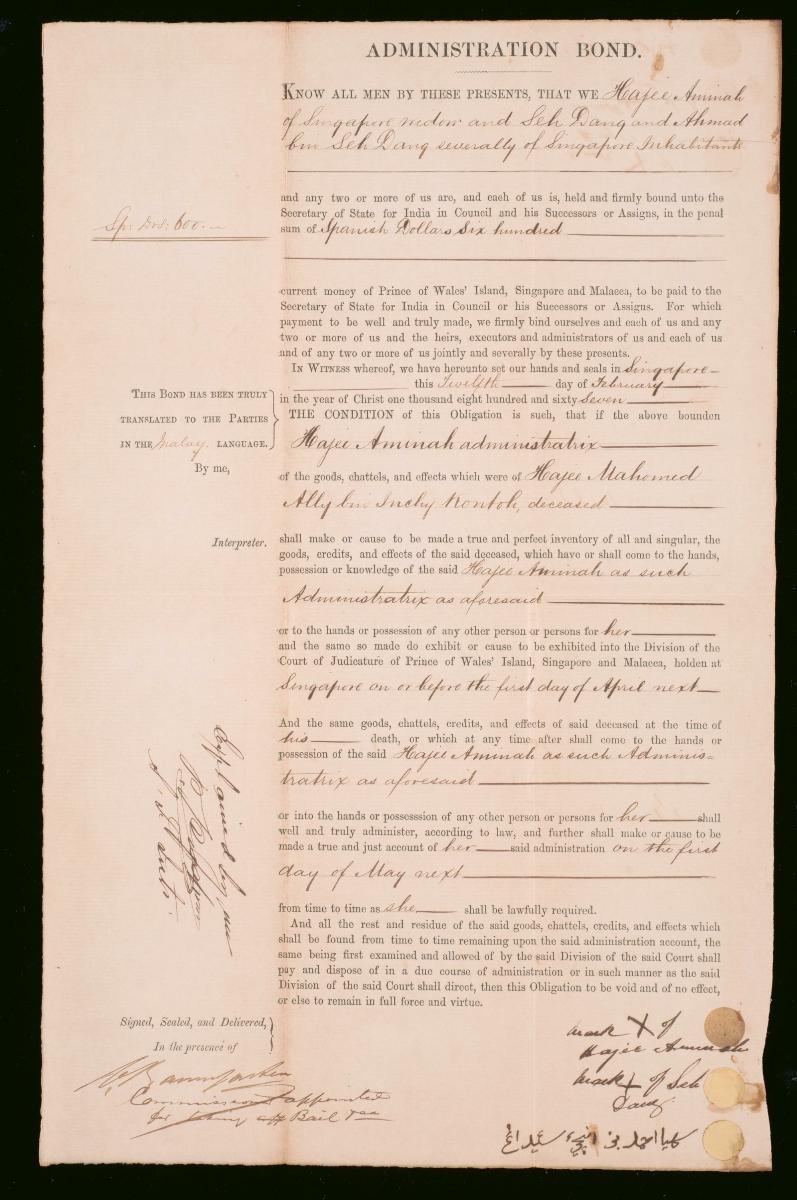 ADMINISTRATION BOND.
KNOW ALL MEN BY THESE PRESENTS, THAT WE Hajee Aminah
of Singapore widow and Seh Dang and Ahmad
bin Seh Dang severally of Singapore Inhabitants
and any two or more of us are, and each of us is, held and firmly bound unto the
Secretary of State for India in Council and his Successors or Assigns, in the penal
sum of Spanish Dollars Six hundred
Sp: Drs: 600.—
current money of Prince of Wales' Island, Singapore and Malacca, to be paid to the
Secretary of State for India in Council or his Successors or Assigns. For which
payment to be well and truly made, we firmly bind ourselves and each of us and any
two or more of us and the heirs, executors and administrators of us and each of us
and of any two or more of us jointly and severally by these presents.
IN WITNESS whereof, we have hereunto set our hands and seals in Singapore
this Twelfth day of February
in the year of Christ one thousand eight hundred and sixty Seven
THIS BOND HAS BEEN TRULY
TRANSLATED TO THE PARTIES
IN THE Malay LANGUAGE.
By me,
Interpreter.
THE CONDITION of this Obligation is such, that if the above bounden
Hajee Aminah administratrix
of the goods, chattels, and effects which were of Hajee Mahomed
Ally bin Inchy Kontoh, deceased
shall make or cause to be made a true and perfect inventory of all and singular, the
goods, credits, and effects of the said deceased, which have or shall come to the hands,
possession or knowledge of the said Hajee Aminah as such
Administratrix as aforesaid
or to the hands or possession of any other person or persons for her
and the same so made do exhibit or cause to be exhibited into the Division of the
Court of Judicature of Prince of Wales' Island, Singapore and Malacca, holden at
Singapore on or before the first day of April next
And the same goods, chattels, credits, and effects of said deceased at the time of
his death, or which at any time after shall come to the hands or
possession of the said Hajee Aminah as such Adminis=
tratrix as aforesaid
or into the hands or posssession of any other person or persons for her shall
well and truly administer, according to law, and further shall make or cause to be
made a true and just account of her said administration on the first
day of May next
from time to time as she shall be lawfully required.
And all the rest and residue of the said goods, chattels, credits, and effects which
shall be found from time to time remaining upon the said administration account, the
same being first examined and allowed of by the said Division of the said Court shall
pay and dispose of in a due course of administration or in such manner as the said
Division of the said Court shall direct, then this Obligation to be void and of no effect,
or else to remain in full force and virtue.
Explained by me
Signed, Sealed, and Delivered,
In the presence of
Commissioner appointed
for Bail &ca
mark X of
Hajee Aminah
mark X of Seh
Dang